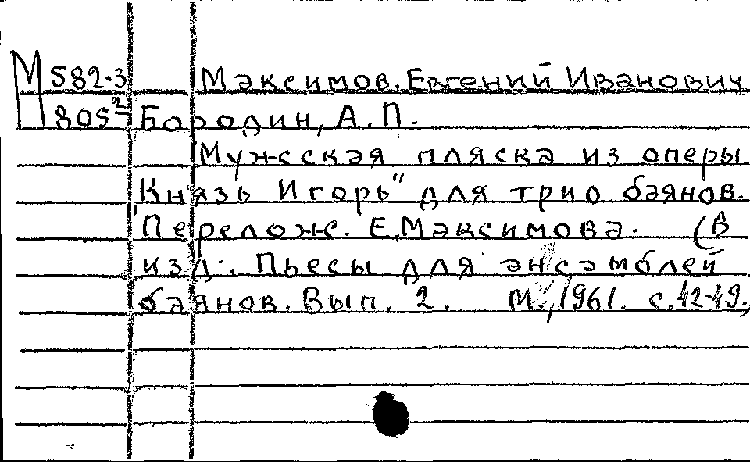 М 582-3 Максимов. Евгений Иванович
805² Бородин, А.П.
Мужсская пляска из оперы
Князь Игорь" для трио баянов.
Перелож. Е.Максимова. (В
изд.: Пьесы для ансамблей
баянов. Вып. 2. М., 1961. с.12-19.